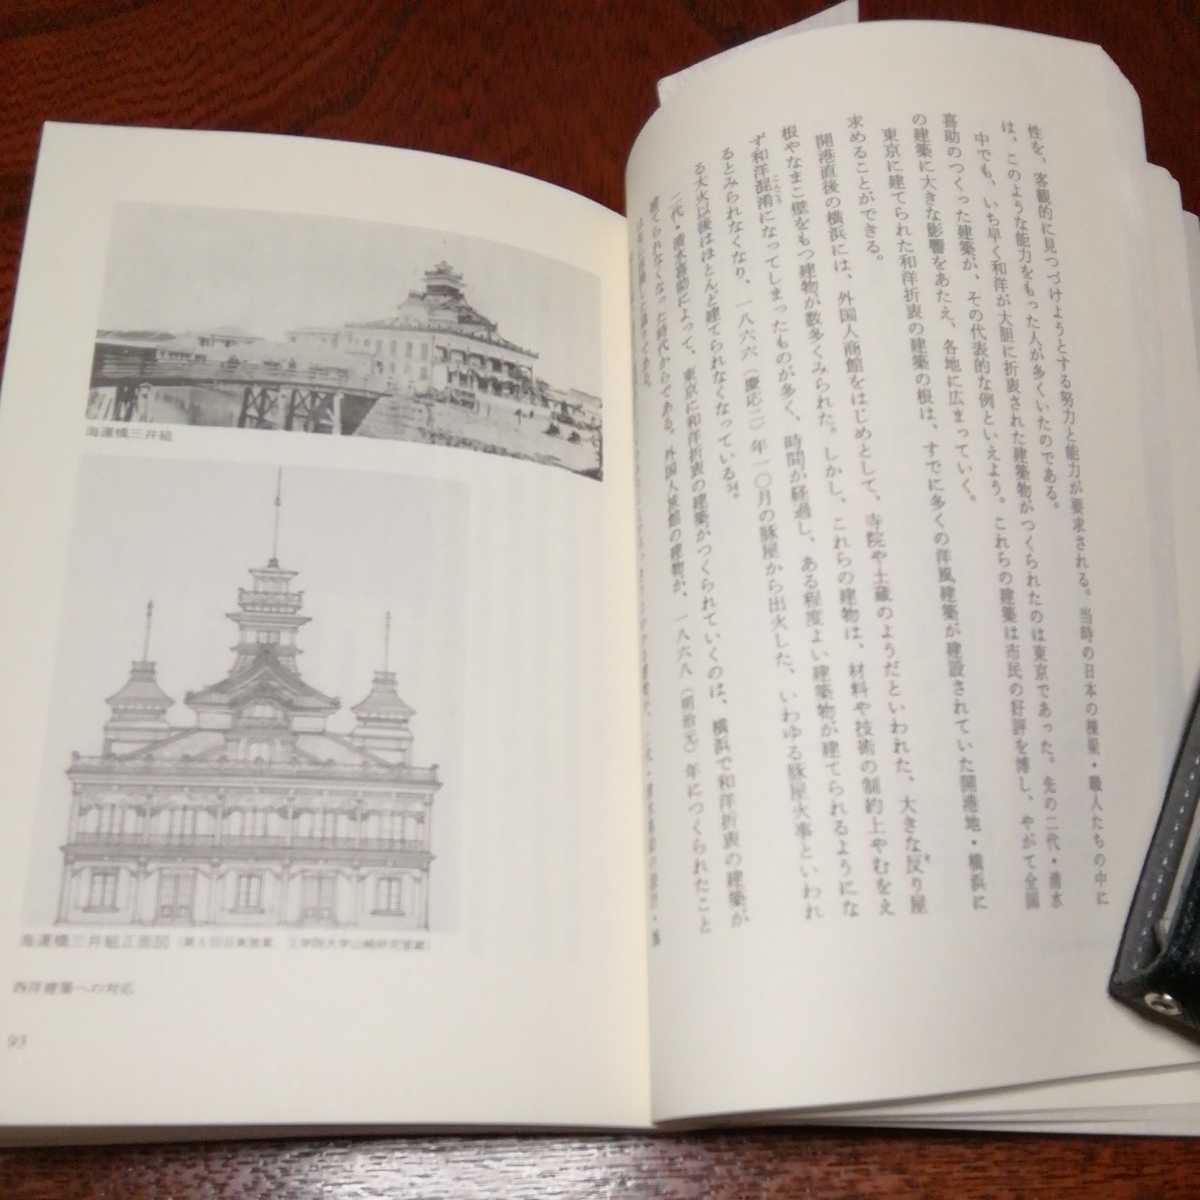 性を、客観的に見つけようとする努力と能力が要求される。当時の日本の棟梁・職人たちの中に
は、このような能力をもった人が多くいたのである。
中でも、いち早く和洋が大胆に折衷された建築物がつくられたのは東京であった。先の二代・清水
喜助のつくった建築が、その代表的な例といえよう。これらの建築は市民の好評を博し、やがて全国
の建築に大きな影響をあたえ、各地に広まっていく。
東京に建てられた和洋折衷の建築の根は、すでに多くの洋風建築が建設されていた開港地・横浜に
求めることができる。
開港直後の横浜には、外国人商館をはじめとして、寺院や土蔵のようだといわれた、大きな反り屋
根やなまこ壁をもつ建物が数多くみられた。しかし、これらの建物は、材料や技術の制約上やむをえ
ず和洋混淆になってしまったものが多く、時間が経過し、ある程度よい建築物が建てられるようにな
こんこう
るとみられなくなり、一八六六（慶応二）年一〇月の豚屋から出火した、いわゆる豚屋火事といわれ
る大火以後はほとんど建てられなくなっている34。
二代・清水喜助によって、東京に和洋折衷の建築がつくられていくのは、横浜で和洋折衷の建築が
建てられなくなった時代からである。外国人旅館の建物が、一八六八（明治元）年につくられたこと
海運橋三井組
海運橋三井組正面図（工学院大学山崎研究室蔵）
西洋建築への対応
93